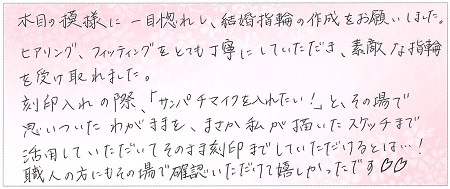 木目の模様に一目惚れし、結婚指輪の作成をお願いしました。
ヒアリング、フィッティングをとても丁寧にしていただき、素敵な指輪
を受け取れました。
刻印入れの際、「サンパチマイクを入れたい!」と、その場で
思いついたわがままを、まさか私が描いたスケッチまで
活用していただいてそのまま刻印までしていただけるとは…!
職人の方にもその場で確認いただけて嬉しかったです♡♡